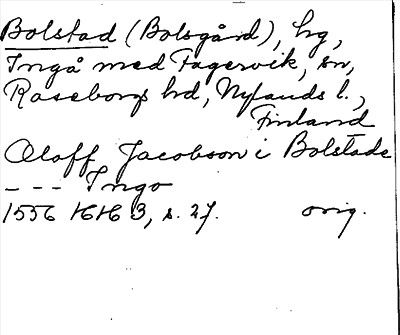 Bolstad (Bolsgård), hg,
Ingå med Fagervik, sn,
Raseborgs hd, Nylands l.,
Finland
Oloff Jacobson i Bolstade
--- Ingo
1556 KHK 3, s. 27. orig.